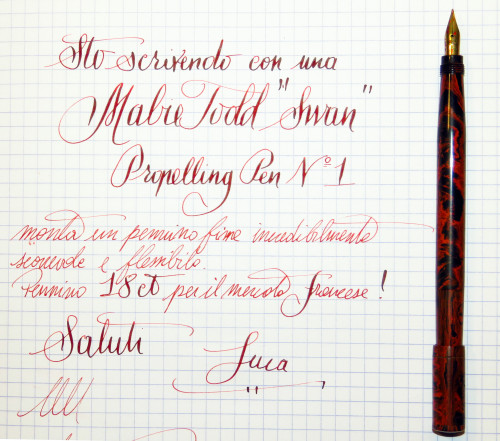 Sto scrivendo con una
Mabie Todd "Swan"
Propelling Pen Nº 1
monta un pennino fine incredibilmente
scorrevole e flessibile.
Pennino 18 ct per il mercato francese!
Saluti
Luca